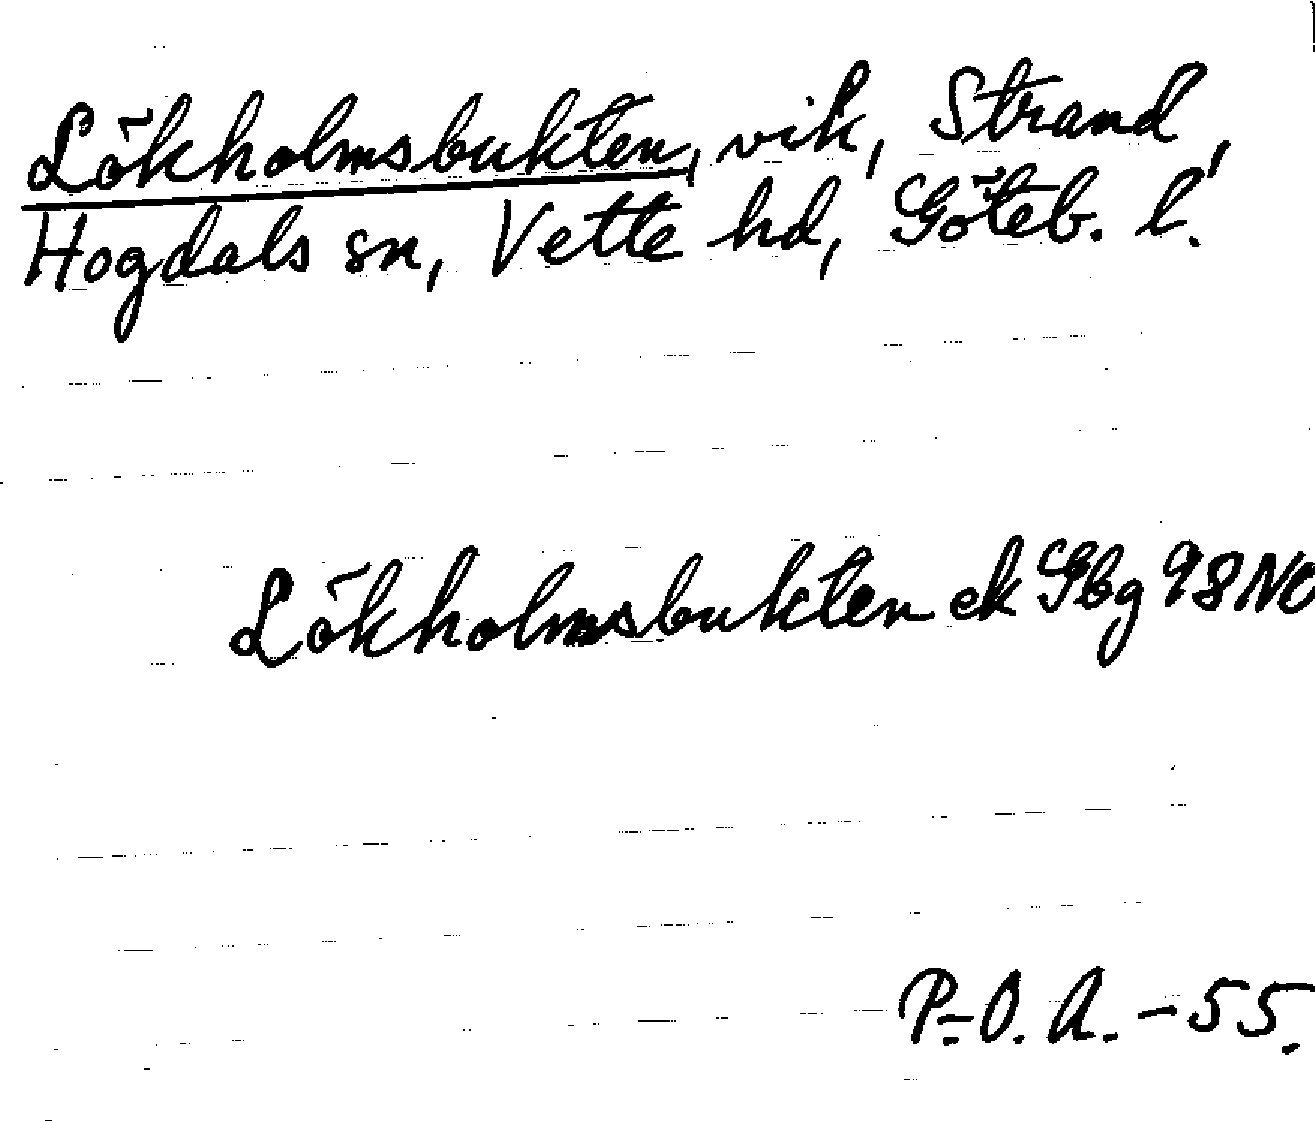 Lökholmsbukten, vik, Strand,
Hogdals sn, Vette hd, Göteb. l.
Lökholmsbukten ek Gbg 98 NO
P.-O. A. -55.